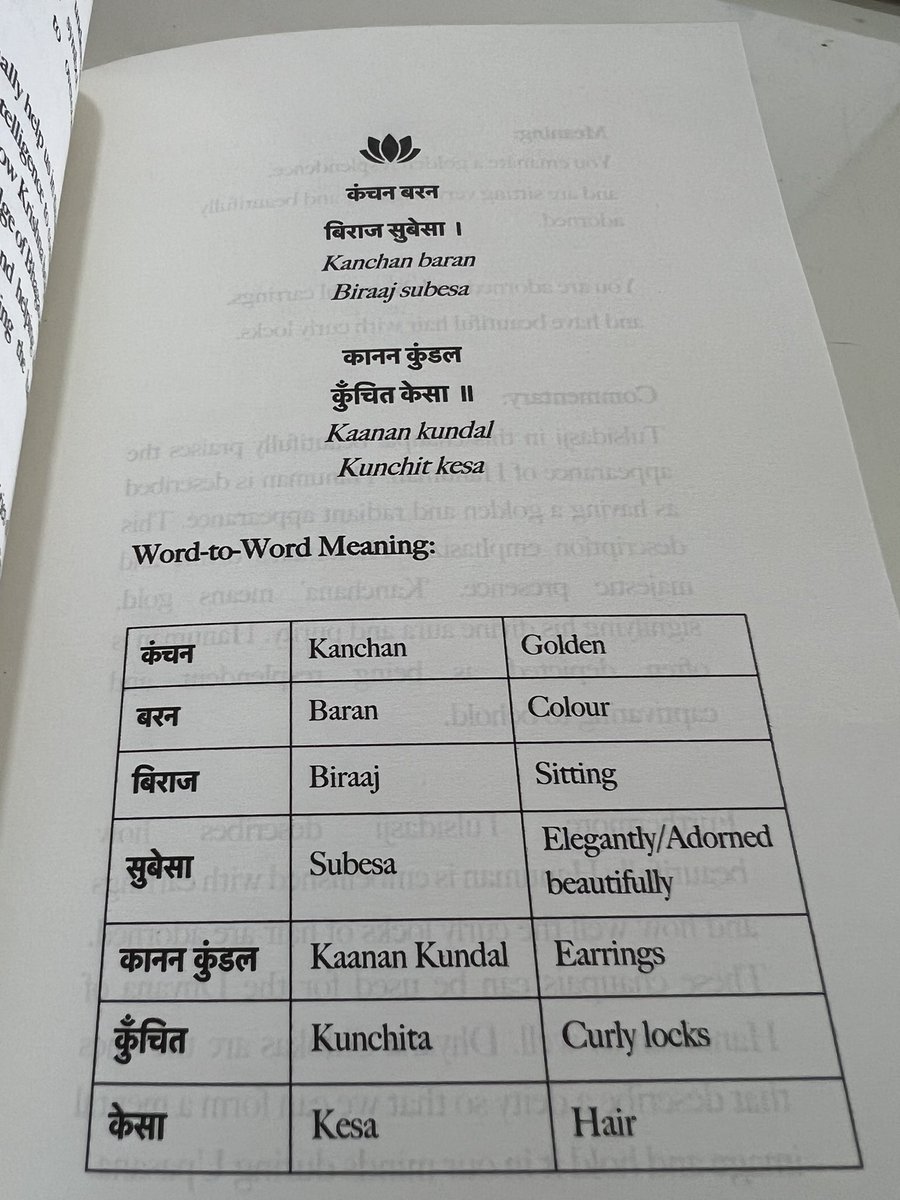 कंचन बरन
बिराज सुबेसा ।
Kanchan baran
Biraaj subesa
कानन कुंडल
कुँचित केसा ॥
Kaanan kundal
Kunchit kesa
Word-to-Word Meaning:
कंचन Kanchan Golden
बरन Baran Colour
बिराज Biraaj Sitting
सुबेसा Subesa Elegantly/Adorned beautifully
कानन कुंडल Kaanan Kundal Earrings
कुँचित Kunchita Curly locks
केसा Kesa Hair